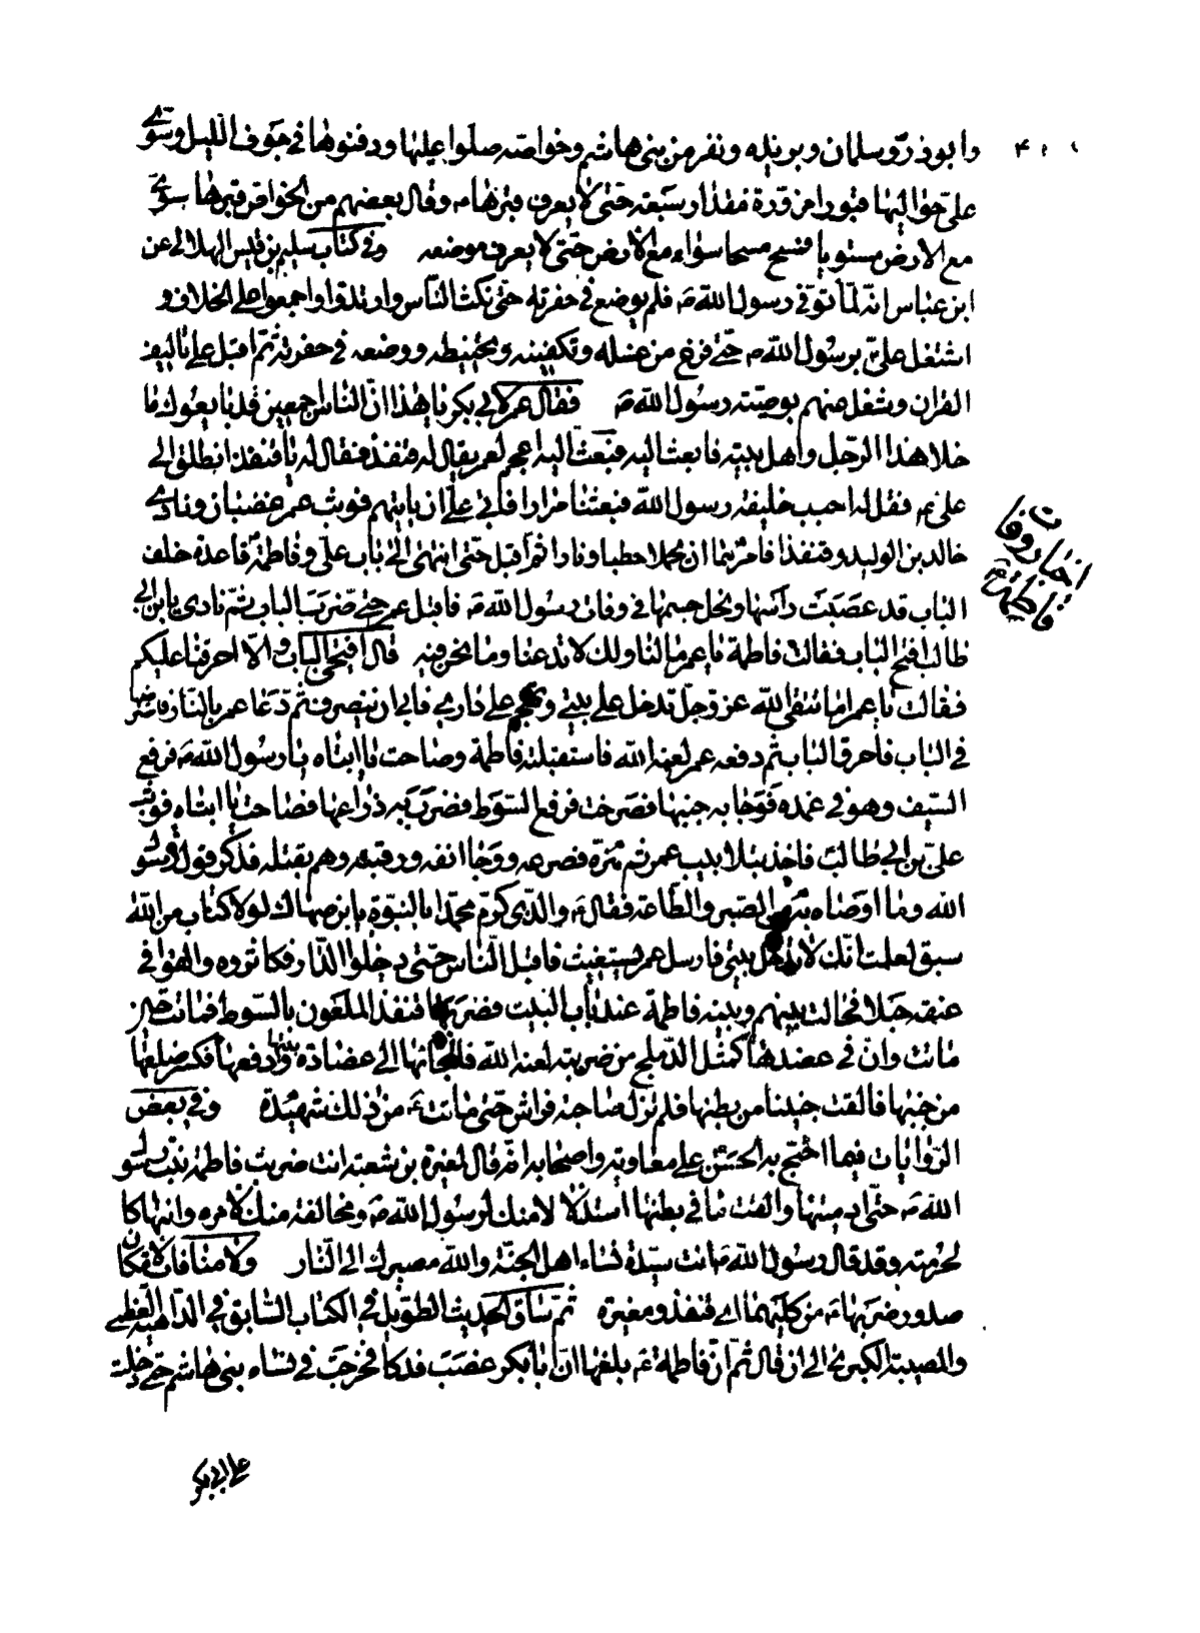 وابوذرّ وسلمان وبريده ونفر من بنى هاشم وخواصّه صلّوا عليها ودفنوها في جوف الليل وسوّى
علىّ حواليها قبورا مزوّرة مقدار سبعة حتّى لا يعرف قبرها ٤ وقال بعضهم من الخواصّ قبرها سوّى
مع الارض مستويا فمسح مسحا سواء مع الارض حتّى لا يعرف موضعه وفى كتاب سليم بن قيس الهلالى عن
ابن عباس انّه لمّا توفّى رسول اللّه ص فلم يوضع في حفرته حتّى نكث النّاس وارتدّوا واجمعوا على الخلاف و
اشتغل علىّ برسول اللّه ص حتّى فرغ من غسله وتكفينه وتحنيطه ووضعه في حفرته ثمّ اقبل على تاليف
القران وشغل عنهم بوصيّة رسول اللّه ص فقال عمر لابى بكر يا هذا انّ النّاس اجمعين قد بايعوك ما
خلا هذا الرّجل واهل بيته فابعث اليه فبعث اليه ابن عم لعمر يقال له قنفذ فقال له يا قنفذ انطلق الى
علىّ فقل له اجب خليفة رسول اللّه فبعثنا مرارا فابى علىّ ان ياتيهم فوثب عمر غضبان ونادى
خالد بن الوليد وقنفذا فامرهما ان يحملا حطبا ونارا ثمّ اقبل حتّى انتهى الى باب علىّ وفاطمة قاعدة خلف
الباب قد عصبت راسها ونحل جسمها في وفات رسول اللّه ص فاقبل عمر حتّى ضرب الباب ثمّ نادى يا بن ابى
طالب افتح الباب فقالت فاطمة يا عمر ما لنا ولك لا تدعنا وما نحن فيه قال افتحى الباب والّا احرقنا عليكم
فقالت يا عمر اما تتّقى اللّه عزّ وجلّ تدخل على بيتى وتهجم على دارى فابى ان ينصرف ثمّ دعا عمر بالنّار فاضرمها
في الباب فاحرق الباب ثمّ دفعه عمر لعنه اللّه فاستقبلته فاطمة وصاحت يا ابتاه يا رسول اللّه ص فرفع
السّيف وهو في غمده فوجا به جنبها فصرخت فرفع السّوط فضرب به ذراعها فصاحت يا ابتاه فوثب
علىّ بن ابى طالب فاخذ بتلابيب عمر ثم هزّه فصرعه ووجا انفه ورقبته وهم بقتله فذكر قول رسول
اللّه وما اوصاه به من الصّبر والطّاعة فقال ٤ والّذى كرّم محمّدا بالنبوّة يا بن صهّاك لولا كتاب من اللّه
سبق لعلمت انّك لا تدخل بيتى فارسل عمر يستغيث فاقبل النّاس حتّى دخلوا الدّار فكاثروه والقوا في
عنقه حبلا فحالت بينهم وبينه فاطمة عند باب البيت فضربها قنفذ الملعون بالسّوط فماتت حين
ماتت وانّ في عضدها كمثل الدّملج من ضربته لعنه اللّه فالجاها الى عضادة بيتها ودفعها فكسر ضلعها
من جنبها فالقت جنينا من بطنها فلم تزل صاحبة فراش حتّى ماتت ٤ من ذلك شهيدة وفى بعض
الرّوايات فيما احتجّ به الحسن على معاوية واصحابه انّه قال لمغيرة بن شعبة انت ضربت فاطمة بنت رسول
اللّه ص حتّى ادميتها والقت ما في بطنها استذلالا منك لرسول اللّه ص ومخالفة منك لامره وانتهاكا
لحرمته وقد قال رسول اللّه ص انت سيّدة نساء اهل الجنّة واللّه مصيرك الى النّار ولا منافات لامكان
صدور ضربها ٤ من كليهما اى قنفذ ومغيرة ثمّ ساق الحديث الطّويل في الكتاب السّابق في الدّاهية العظمى
والمصيبة الكبرى الى ان قال ثمّ انّ فاطمة ٤ بلغها انّ ابا بكر غصب فدكا فخرجت في نساء بنى هاشم حتّى دخلت
على ابى بكر
اخبار وفات
فاطمة ع